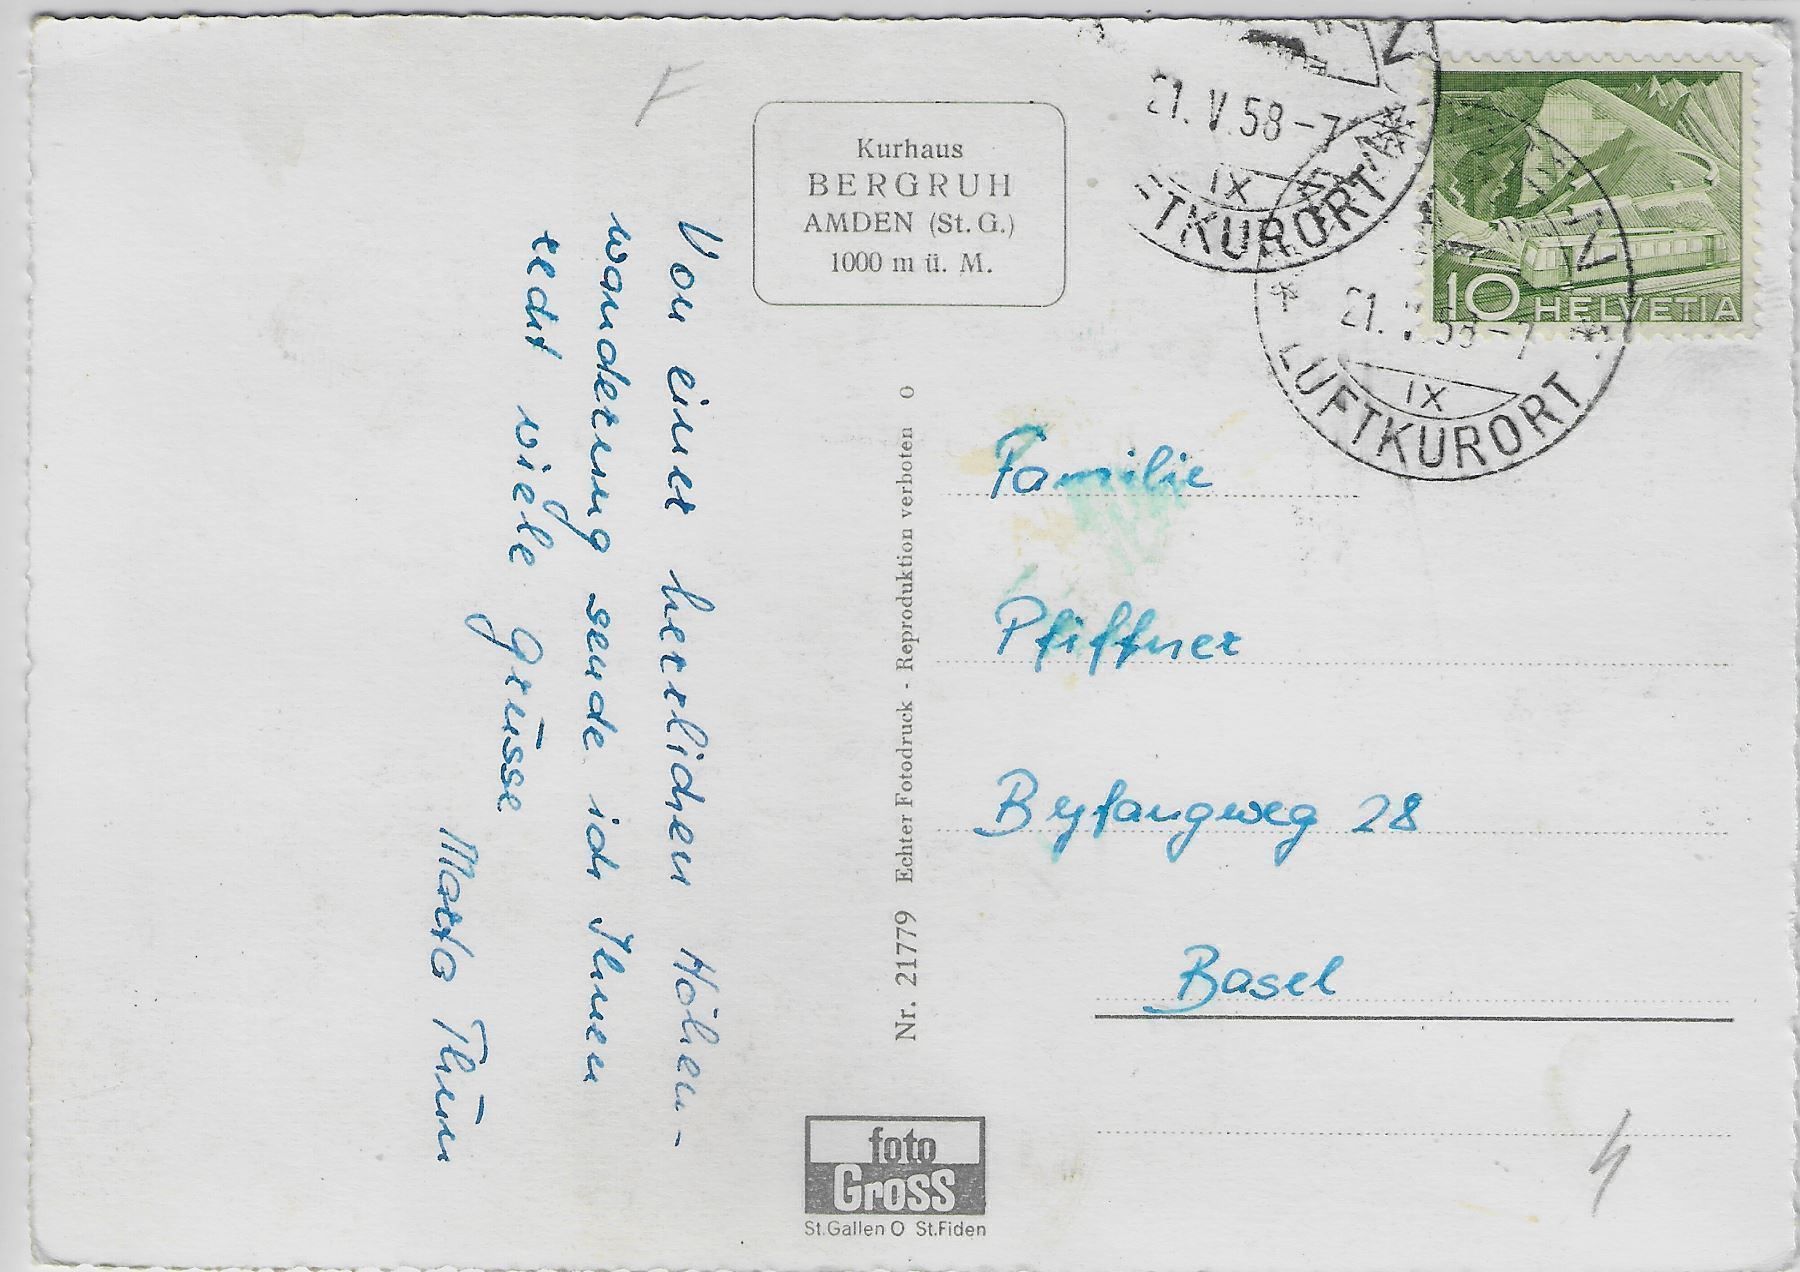 Kurhaus
BERGRUH
AMDEN (St. G.)
1000 m ü. M.
Von einer herrlichen Höhen-
wanderung sende ich Ihnen
recht viele Grüsse
Marta Thum
Nr. 21779 Echter Fotodruck - Reproduktion verboten o
foto
Gross
St.Gallen O St.Fiden
21.V.58-7
IX
LUFTKURORT
10 HELVETIA
21. 58-7
IX
LUFTKURORT
Familie
Pfiffner
Beyfangweg 28
Basel